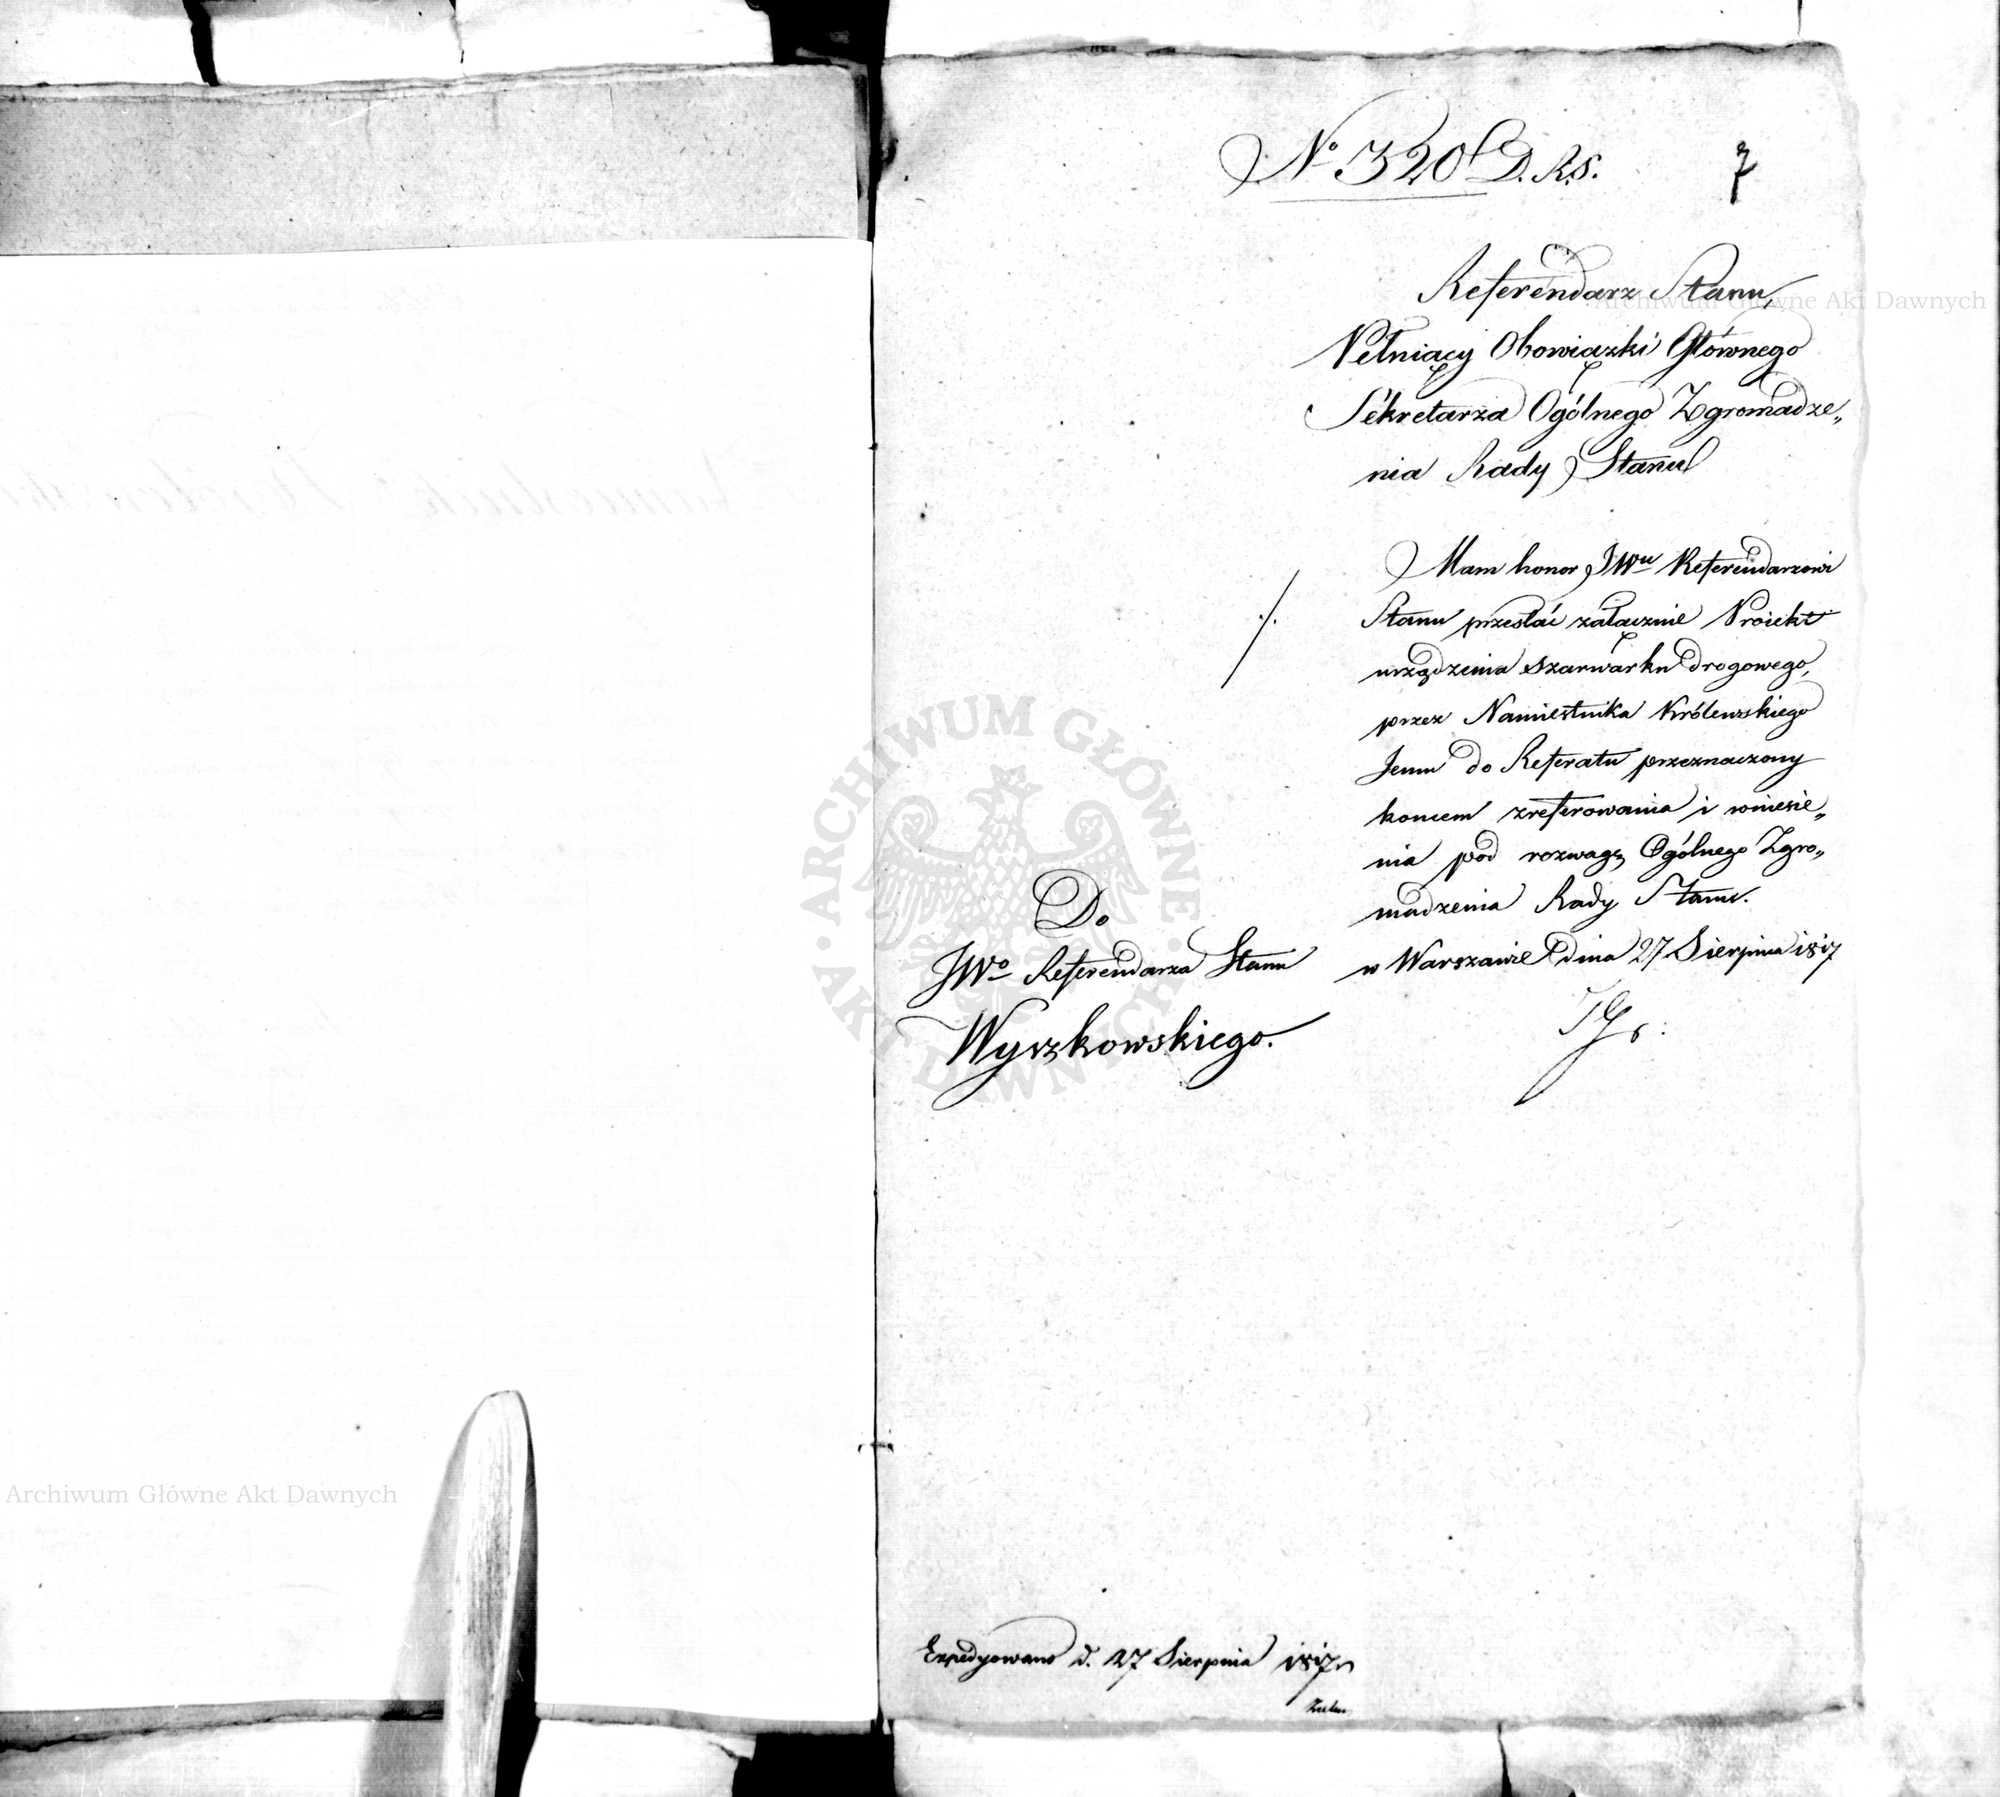 No 320 D.R.S.
7
Referendarz Stanu,
Pełniący Obowiązki Głównego
Sekretarza Ogólnego Zgromadze„
nia Rady Stanu
Mam honor JWu Referendarzowi
Stanu przesłać załącznie Proiekt
urządzenia szarwarku drogowego,
przez Namiestnika Królewskiego
Jemu do Referatu przeznaczony
koncem zreferowania i wniesie„
nia pod rozwagę Ogólnego Zgro„
madzenia Rady Stanu.
w Warszawie dnia 27 Sierpnia 1817
Do
JWo Referendarza Stanu
Wyszkowskiego.
Expedyowano d. 27 Sierpnia 1817
Archiwum Główne Akt Dawnych
Archiwum Główne Akt Dawnych
ARCHIWUM GŁÓWNE AKT DAWNYCH